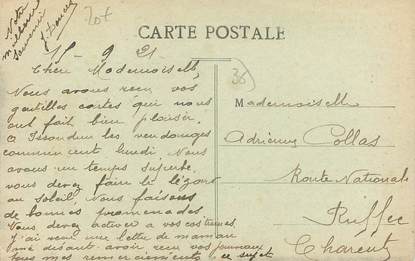 Votre
meilleur
souvenir
CARTE POSTALE
15-9-21
36
Chère Mademoiselle,
Nous avons reçu vos
gentilles cartes qui nous
ont fait bien plaisir.
a Issoudun les vendanges
commencent lundi. Nous
avons un temps superbe
vous devez faire le lézard
au soleil, Nous faisons
de bonnes promenades
Vous devez activer a vos costumes
J'ai reçu une lettre de maman
me disant avoir reçu vos journaux
tous mes remerciements a ce sujet
Mademoiselle
Adrienne Collas
Route Nationale
Ruffec
Charente